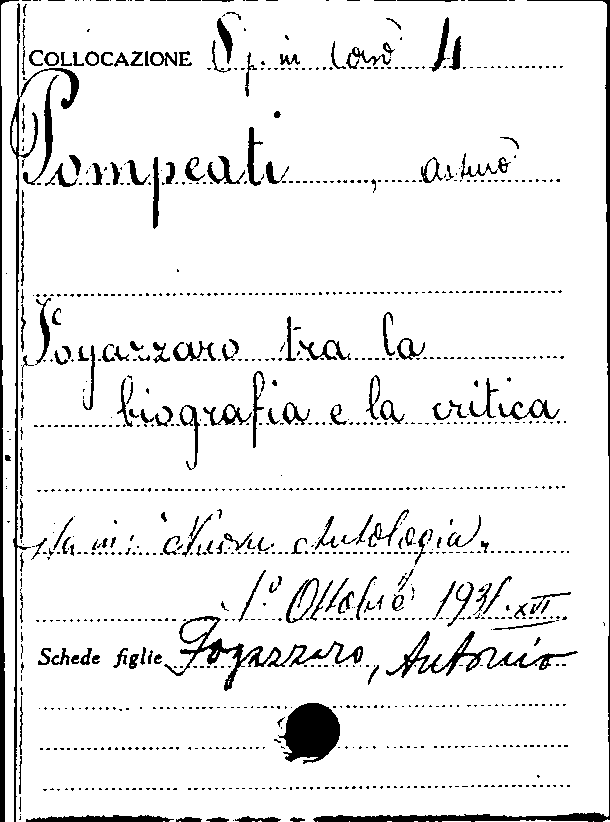 COLLOCAZIONE Sp. in Corso 4
Pompeati, Arturo
Fogazzaro tra la
biografia e la critica
Sta in: "Nuova Antologia"
1º Ottobre XVI
Schede figlie Fogazzaro, Antonio